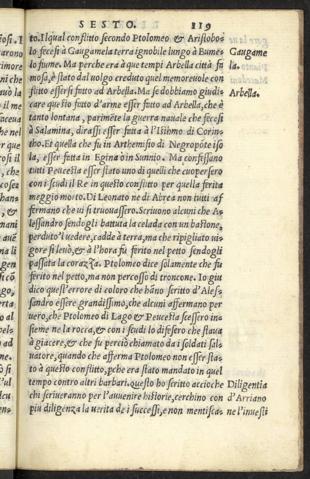 SESTO. 119
to. Il qual conflitto secondo Ptolomeo & Aristobo-
lo fecesi à Gaugamela terra ignobile lungo à Bume-
lo fiume. Ma perche era à que tempi Arbella città fa
mosa, è stato dal volgo creduto quel memorevole con
flitto essersi futto ad Arbella. Ma se dobbiamo giudi-
care que sto futto d'arme esser futto ad Arbella, che è
tanto lontana, parimēte la guerra nauale che fecesi
à Salamina, dirassi esser futta à l'Isthmo di Corin-
tho. Et quella che fu in Arthemisio di Negropōte iso
la, esser futta in Egina ò in Sunnio. Ma confessano
tutti Peucestia esser stato uno di quelli che cuopersero
con i scudi il Re in questo conflitto per quella ferita
meggio morto. Di Leonato ne di Abrea non tutti af
fermano che ui si truouassero. Scriuono alcuni che A-
lessandro sendogli battuta la celada con un bastone,
perduto'l uedere, cadde à terra, ma che ripigliato ui-
gore si leuò, & à l'hora fu ferito nel petto sendogli
passata la corazza. Ptolomeo dice solamente che fu
ferito nel petto, ma non percosso di troncone. Io giu
dico quest'errore di coloro che hāno scritto d'Ales-
sandro essere grandissimo, che alcuni affermano per
uero, che Ptolomeo di Lago & Peucestia scessero in-
sieme ne la rocca, & con i scudi lo difesero che staua
à giacere, & che fu perciò chiamato da i soldati Sal-
uatore, quando che afferma Ptolomeo non esser sta-
to à questo conflitto, pche era stato mandato in quel
tempo contro altri barbari. questo ho scritto accioche
chi scriueranno per l'auuenire historie, cerchino con
piu diligenza la uerita de i successi, e non mentisca-
Gaugame
la.
Arbella.
Diligentia
d'Arriano
ne l'inuesti